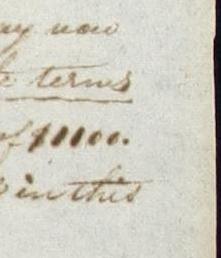 now
terms
of $1100.
in this